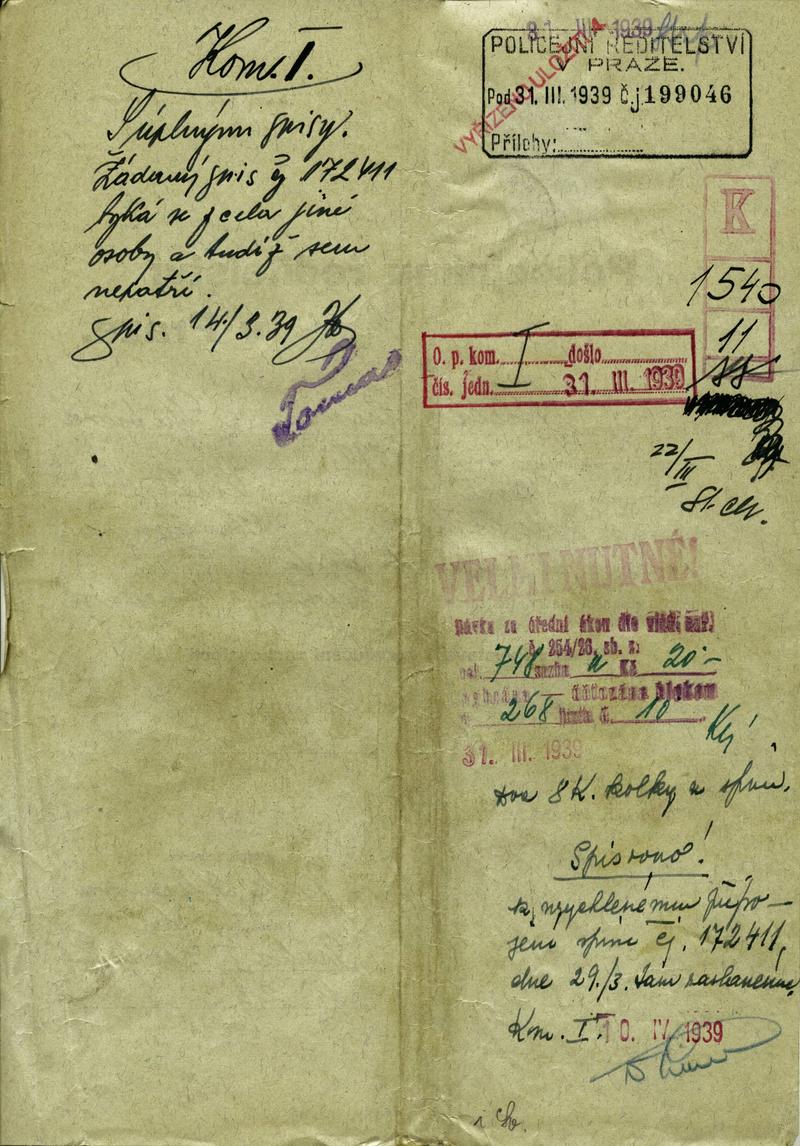 Kom. I.
S úplnými spisy.
Žádaný spis čj 172411
týká se zcela jiné
osoby a tudíž sem
nepatří.
spis. 14/3.39
31. III. 1939
POLICEJNÍ ŘEDITELSTVÍ
V PRAZE.
Pod 31. III. 1939 č.j. 199046
Přílohy:
VYŘÍZENO ULOŽITI
K
1540
11
O. p. kom. I došlo
čís. jedn. 31. III. 1939
22/III
VELMI NUTNÉ!
Dávka za úřední úkon dle vlád. nař.
č. 254/26, sb. z.
pol. 748 sazba a Kč 20.-
vybrána – účtována blokem
č. 268 řada č. 10
31. III. 1939
Dva 8 K. kolky
Spisovno!
k urychlenému připo-
jení spisu čj. 172411,
dne 29./3. tam zaslanému.
Kom. I. 10. IV. 1939